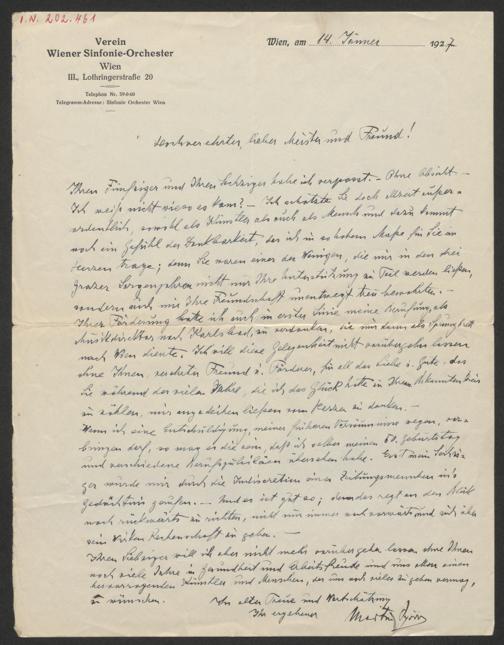 I.N. 202.461
Verein
Wiener Sinfonie-Orchester
Wien
III., Lothringerstraße 20
Telephon Nr. 59-0-60
Telegramm-Adresse: Sinfonie Orchester Wien
Wien, am 14. Jänner 1927
Hochverehrter, lieber Meister und Freund!
Ihren Fünfziger und Ihren Sechziger habe ich verpasst. – Ohne Absicht –
Ich weiß nicht wieso es kam? – Ich schätzte Sie doch allzeit außer-
ordentlich, sowohl als Künstler als auch als Mensch und dazu kommt
noch ein Gefühl der Dankbarkeit, das ich in hohem Maße für Sie im
Herzen trage; denn Sie waren einer der Wenigen, die mir in den drei
Grazer Sorgenjahren nicht nur Ihre Unterstützung zu Teil werden ließen,
sondern auch mir Ihre Freundschaft unentwegt treu bewahrte. –
Ihrer Förderung habe ich auch in erster Linie meine Berufung als
Musikdirektor nach Karlsbad zu verdanken, die mir dann als Sprungbrett
nach Wien diente. – Ich will diese Gelegenheit nicht vorübergehen lassen
ohne Ihnen, verehrter Freund u. Förderer, für all das Liebe u. Gute, das
Sie während der vielen Jahre, die ich das Glück hatte in Ihren Bekanntenkreis
zu zählen, mir angedeihen ließen vom Herzen zu danken. –
Wenn ich eine Entschuldigung meiner früheren Versäumnisse wegen, vor-
bringen darf, so mag es die sein, daß ich selber meinen 50. Geburtstag
und verschiedene Berufsjubiläen übersehen habe. Erst mein Sechzi-
ger wurde mir durch die Indiscretion eines Zeitungsmenschen in's
Gedächtnis gerufen. – Und es ist gut so;
nach rückwärts zu richten, nicht nur immer nach vorwärts und sich über
sein Wirken Rechenschaft zu geben. –
Ihren Siebziger will ich aber nicht mehr vorübergehen lassen ohne Ihnen
noch viele Jahre in Gesundheit und Arbeitsfreude und uns allen einen
hervorragenden Künstler und Menschen, der uns noch vieles zu geben vermag,
zu wünschen.
In alter Treue und Wertschätzung
Ihr ergebener